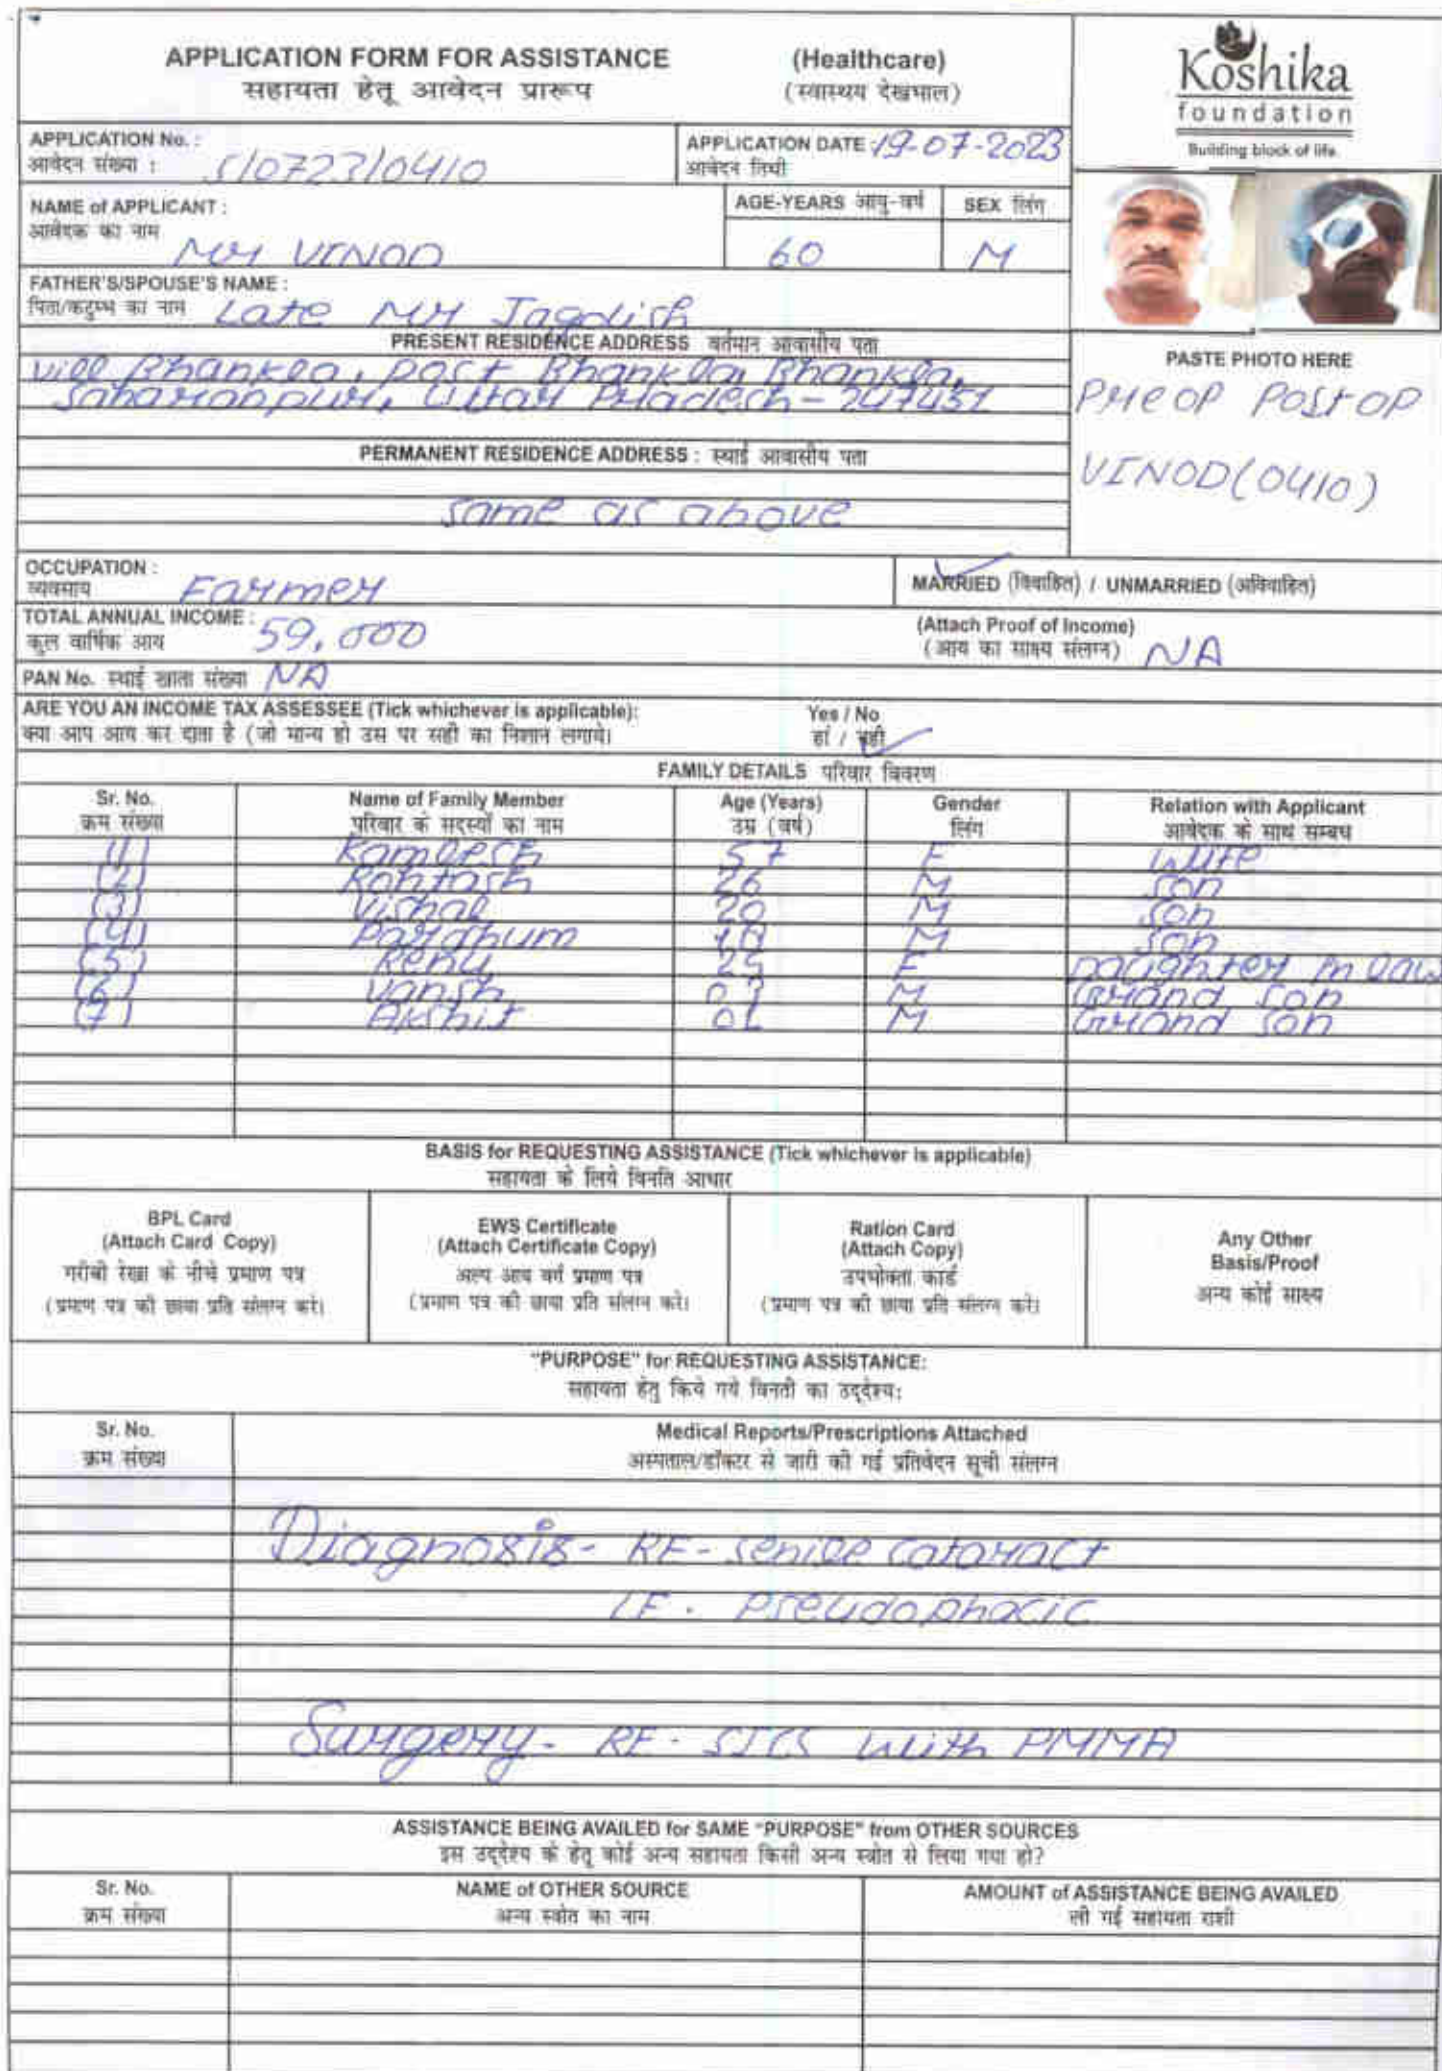 APPLICATION FORM FOR ASSISTANCE (Healthcare)
सहायता हेतू आवेदन प्रारूप (स्वास्थय देखभाल)
Koshika
foundation
Building block of life.
APPLICATION No. :
आवेदन संख्या : S/0723/0410
APPLICATION DATE 19-07-2023
आवेदन तिथी
NAME of APPLICANT :
आवेदक का नाम Mr VINOD
AGE-YEARS आयु-वर्ष 60
SEX लिंग M
FATHER'S/SPOUSE'S NAME :
पिता/कटुम्भ का नाम Late Mr Jagdish
PRESENT RESIDENCE ADDRESS वर्तमान आवासीय पता
Vill Bhankla, Post Bhankla, Bhankla,
Saharanpur, Uttar Pradesh - 247451
PERMANENT RESIDENCE ADDRESS : स्थाई आवासीय पता
same as above
PASTE PHOTO HERE
Preop Postop
VINOD(0410)
OCCUPATION :
व्यवसाय Farmer
MARRIED (विवाहित) / UNMARRIED (अविवाहित)
TOTAL ANNUAL INCOME :
कुल वार्षिक आय 59,000
(Attach Proof of Income)
(आय का साक्ष्य संलग्न) NA
PAN No. स्थाई खाता संख्या NA
ARE YOU AN INCOME TAX ASSESSEE (Tick whichever is applicable): Yes / No
क्या आप आय कर दाता है (जो मान्य हो उस पर सही का निशान लगाये। हां / नही
FAMILY DETAILS परिवार विवरण
Sr. No. Name of Family Member Age (Years) Gender Relation with Applicant
क्रम संख्या परिवार के सदस्यों का नाम उम्र (वर्ष) लिंग आवेदक के साथ सम्बध
(1) Kamlesh 57 F Wife
(2) Rohtash 26 M Son
(3) Vishal 20 M Son
(4) M Son
(5) Renu 25 F Daughter in law
(6) Vansh M Grand Son
(7) Akshit M Grand Son
BASIS for REQUESTING ASSISTANCE (Tick whichever is applicable)
सहायता के लिये विनति आधार
BPL Card
(Attach Card Copy)
गरीबी रेखा के नीचे प्रमाण पत्र
(प्रमाण पत्र की छाया प्रति संलग्न करे।
EWS Certificate
(Attach Certificate Copy)
अल्प आय वर्ग प्रमाण पत्र
(प्रमाण पत्र की छाया प्रति संलग्न करे।
Ration Card
(Attach Copy)
उपभोक्ता कार्ड
(प्रमाण पत्र की छाया प्रति संलग्न करे।
Any Other
Basis/Proof
अन्य कोई साक्ष्य
"PURPOSE" for REQUESTING ASSISTANCE:
सहायता हेतु किये गये विनती का उद्देश्य:
Sr. No. Medical Reports/Prescriptions Attached
क्रम संख्या अस्पताल/डॉक्टर से जारी की गई प्रतिवेदन सूची संलग्न
Diagnosis - RE - senile cataract
LE - Pseudophacic
Surgery - RE - SICS with PMMA
ASSISTANCE BEING AVAILED for SAME "PURPOSE" from OTHER SOURCES
इस उद्देश्य के हेतू कोई अन्य सहायता किसी अन्य स्त्रोत से लिया गया हो?
Sr. No. NAME of OTHER SOURCE AMOUNT of ASSISTANCE BEING AVAILED
क्रम संख्या अन्य स्त्रोत का नाम ली गई सहायता राशी